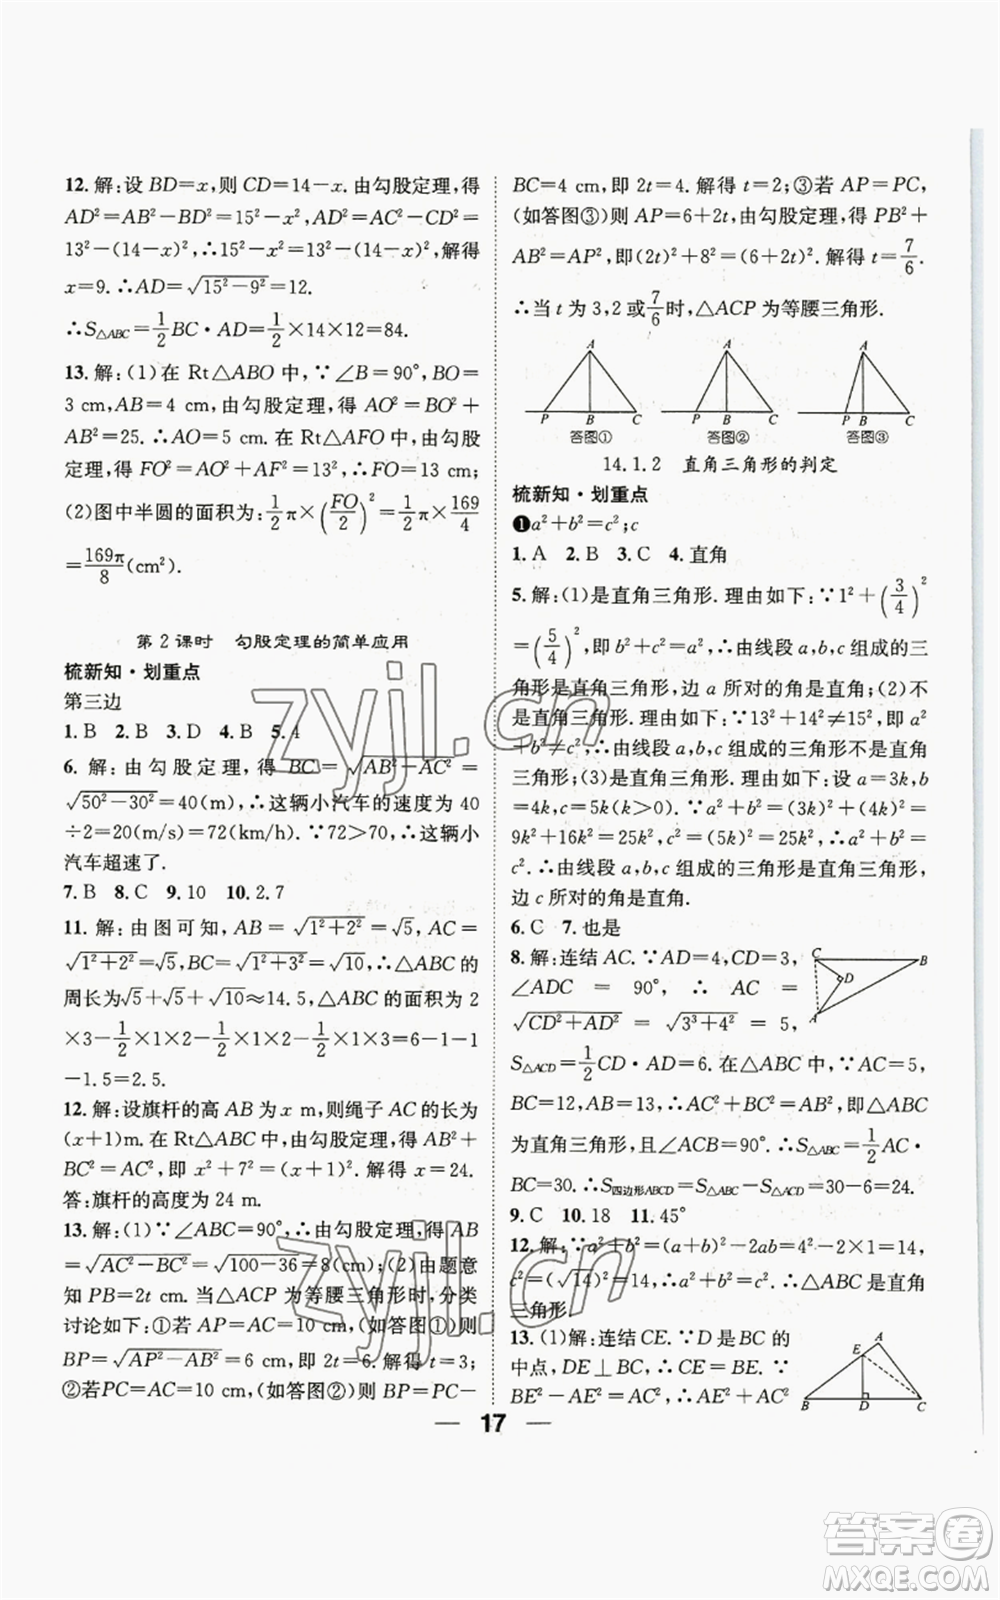 12. 解:设 BD=x,则 CD=14-x. 由勾股定理,得
AD²=AB²-BD²=15²-x²,AD²=AC²-CD²=
13²-(14-x)²,∴15²-x²=13²-(14-x)²,解得
x=9. ∴AD=√(15²-9²)=12.
∴S△ABC=1/2 BC·AD=1/2×14×12=84.
13. 解:(1)在 Rt△ABO 中,∵∠B=90°,BO=
3 cm,AB=4 cm,由勾股定理,得 AO²=BO²+
AB²=25. ∴AO=5 cm. 在 Rt△AFO 中,由勾股
定理,得 FO²=AO²+AF²=13²,∴FO=13 cm;
(2)图中半圆的面积为:1/2π×(FO/2)²=1/2π×169/4
=169π/8(cm²).
第 2 课时 勾股定理的简单应用
梳新知·划重点
第三边
1. B 2. B 3. D 4. B 5. 4
6. 解:由勾股定理,得 BC=√(AB²-AC²)=
√(50²-30²)=40(m),∴这辆小汽车的速度为 40
÷2=20(m/s)=72(km/h). ∵72>70,∴这辆小
汽车超速了.
7. B 8. C 9. 10 10. 2.7
11. 解:由图可知,AB=√(1²+2²)=√5,AC=
√(1²+2²)=√5,BC=√(1²+3²)=√10,∴△ABC 的
周长为√5+√5+√10≈14.5,△ABC 的面积为 2
×3-1/2×1×2-1/2×1×2-1/2×1×3=6-1-1
-1.5=2.5.
12. 解:设旗杆的高 AB 为 x m,则绳子 AC 的长为
(x+1)m. 在 Rt△ABC 中,由勾股定理,得 AB²+
BC²=AC²,即 x²+7²=(x+1)². 解得 x=24.
答:旗杆的高度为 24 m.
13. 解:(1)∵∠ABC=90°,由勾股定理,得 AB
=√(AC²-BC²)=√(100-36)=8(cm);(2)由题意
知 PB=2t cm. 当△ACP 为等腰三角形时,分类
讨论如下:①若 AP=AC=10 cm,(如答图①)则
BP=√(AP²-AB²)=6 cm,即 2t=6. 解得 t=3;
②若PC=AC=10 cm,(如答图②)则 BP=PC-
BC=4 cm,即 2t=4. 解得 t=2;③若 AP=PC,
(如答图③)则 AP=6+2t,由勾股定理,得 PB²+
AB²=AP²,即(2t)²+8²=(6+2t)². 解得 t=7/6.
∴当 t 为 3,2 或7/6时,△ACP 为等腰三角形.
A A A
P B C P B C P B C
答图① 答图② 答图③
14.1.2 直角三角形的判定
梳新知·划重点
❶a²+b²=c²;c
1. A 2. B 3. C 4. 直角
5. 解:(1)是直角三角形. 理由如下:∵1²+(3/4)²
=(5/4)²,即 b²+c²=a²,∴由线段 a,b,c 组成的三
角形是直角三角形,边 a 所对的角是直角;(2)不
是直角三角形. 理由如下:∵13²+14²≠15²,即 a²
+b²≠c²,∴由线段 a,b,c 组成的三角形不是直角
三角形;(3)是直角三角形. 理由如下:设 a=3k,b=
4k,c=5k(k>0). ∵a²+b²=(3k)²+(4k)²=
9k²+16k²=25k²,c²=(5k)²=25k²,∴a²+b²=
c². ∴由线段 a,b,c 组成的三角形是直角三角形,
边 c 所对的角是直角.
6. C 7. 也是
8. 解:连结 AC. ∵AD=4,CD=3,
∠ADC = 90°, ∴ AC =
√(CD²+AD²) = √(3²+4²) = 5,
S△ACD=1/2 CD·AD=6. 在△ABC 中,∵AC=5,
BC=12,AB=13,∴AC²+BC²=AB²,即△ABC
为直角三角形,且∠ACB=90°. ∴S△ABC=1/2 AC·
BC=30. ∴S四边形ABCD=S△ABC-S△ACD=30-6=24.
C B
D
A
9. C 10. 18 11. 45°
12. 解:∵a²+b²=(a+b)²-2ab=4²-2×1=14,
c²=(√14)²=14,∴a²+b²=c². ∴△ABC 是直角
三角形.
13. (1)解:连结 CE. ∵D 是 BC 的
中点,DE⊥BC,∴CE=BE. ∵
BE²-AE²=AC²,∴AE²+AC²
A
E
B D C
17
zyjl.cn
zyjl.cn
答案卷
MXQE.COM